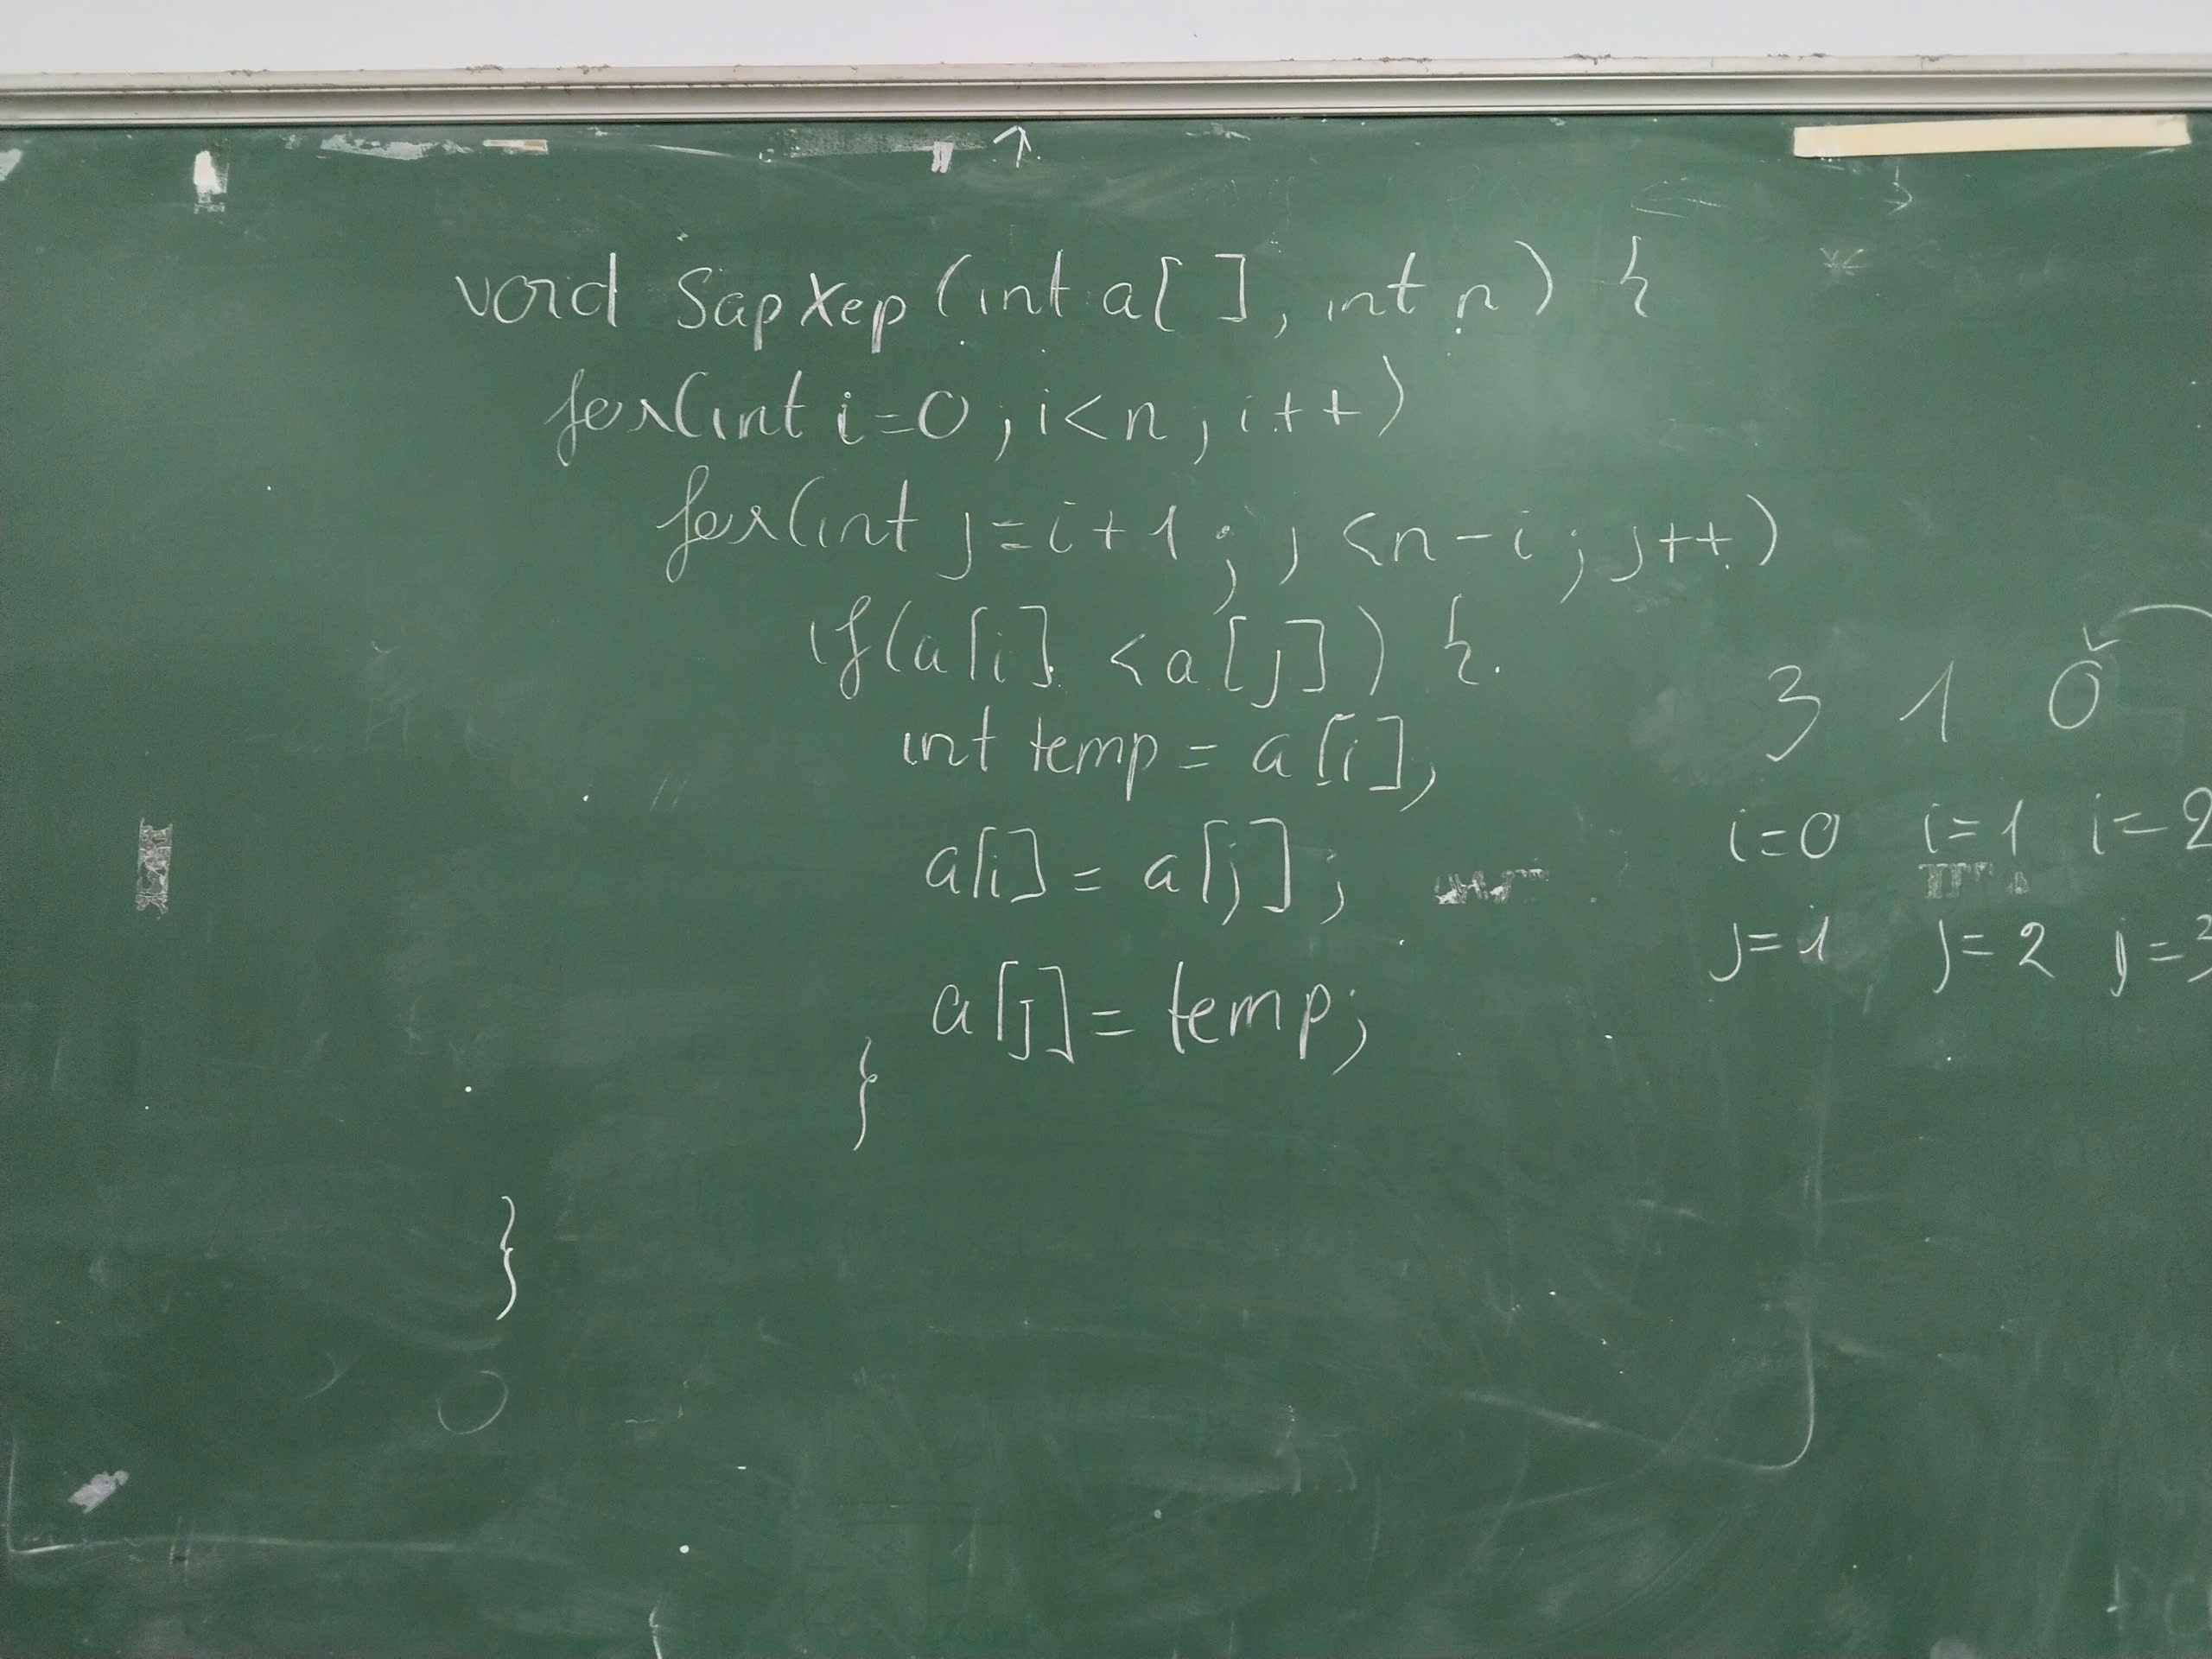 void SapXep (int a[ ], int n) {
for(int i=0; i<n; i++)
for(int j=i+1; j<n-i; j++)
if(a[i] <a[j]) {
int temp = a[i];
a[i] = a[j];
a[j] = temp;
}
}
3 1 0
i=0 i=1 i=2
j=1 j=2 j=3